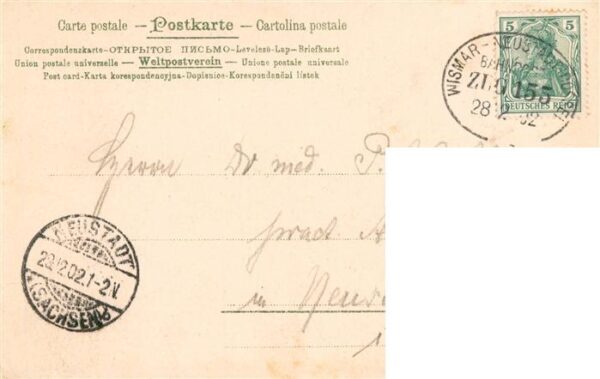 Carte postale — Postkarte — Cartolina postale
Correspondenzkarte-ОТКРЫТОЕ ПИСЬМО-Levelező-Lap-Briefkaart
Union postale universelle — Weltpostverein — Unione postale universale
Post card-Karta korespondencyjna-Dopisnice-Korespondenční lístek
5 5
DEUTSCHES REICH
WISMAR-
ZUG 155
28
Herrn Dr med.
pract
in
NEUSTADT
12.02.1-2.V.
(SACHSEN)